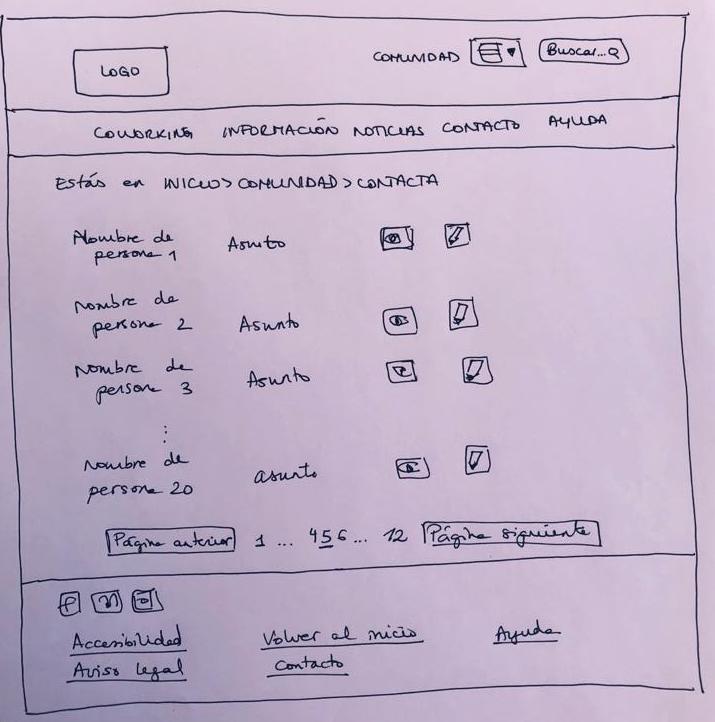 LOGO
COMUNIDAD
Buscar...
COWORKING INFORMACIÓN NOTICIAS CONTACTO AYUDA
Estás en INICIO > COMUNIDAD > CONTACTA
Nombre de
persona 1
Asunto
Nombre de
persona 2
Asunto
Nombre de
persona 3
Asunto
⋮
Nombre de
persona 20
asunto
Página anterior 1 ... 4 5 6 ... 12 Página siguiente
Accesibilidad Volver al inicio Ayuda
Aviso legal Contacto